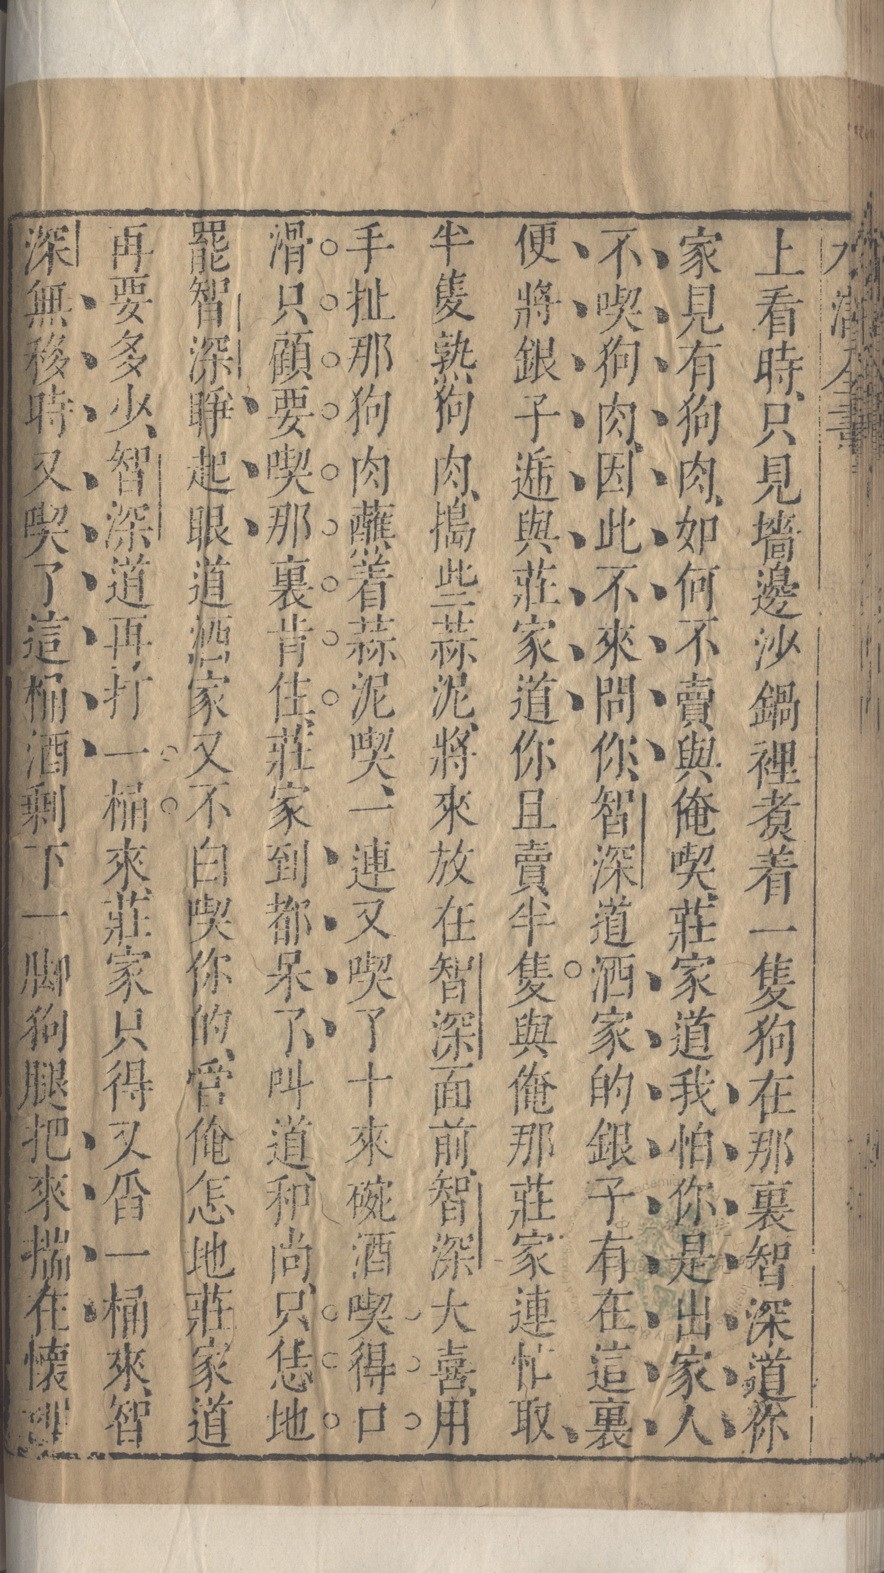 水滸全書
上看時、只見墻邊沙鍋裡煑着一隻狗在那裏智深道你
家見有狗肉、如何不賣與俺喫、莊家道我怕你是出家人
不喫狗肉、因此不來問你、智深道洒家的銀子有在這裏
便將銀子遞與莊家道你且賣半隻與俺那莊家連忙取
半隻熟狗肉、搗些蒜泥、將來放在智深面前、智深大喜、用
手扯那狗肉蘸着蒜泥喫、一連又喫了十來碗酒喫得口
滑只顧要喫那裏肯住、莊家到都呆了、叫道、和尚、只恁地
罷智深睜起眼道洒家又不白喫你的、管俺怎地莊家道
再要多少、智深道再打一桶來、莊家只得又舀一桶來、智
深無移時又喫了這桶酒剩下一脚狗腿把來揣在懷裡